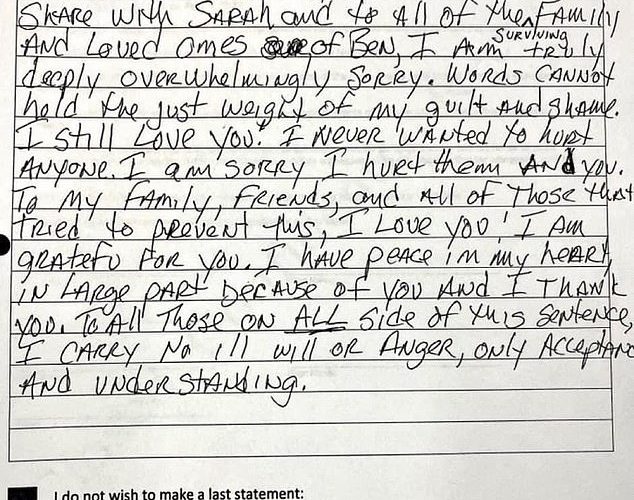 Share with Sarah and to All of the Family
And Loved ones of Ben, I Am surviving truly
deeply overwhelmingly sorry. Words cannot
hold the just weight of my guilt and shame.
I still Love you! I Never wanted to hurt
Anyone. I am sorry I hurt them And you.
To my Family, Friends, and All of Those that
Tried to prevent this, I Love you! I Am
grateful For you. I have peace in my heart,
in Large part because of you And I Thank
you. To All Those on ALL side of this sentence,
I carry No ill will or Anger, only Acceptance
And understanding.
I do not wish to make a last statement: